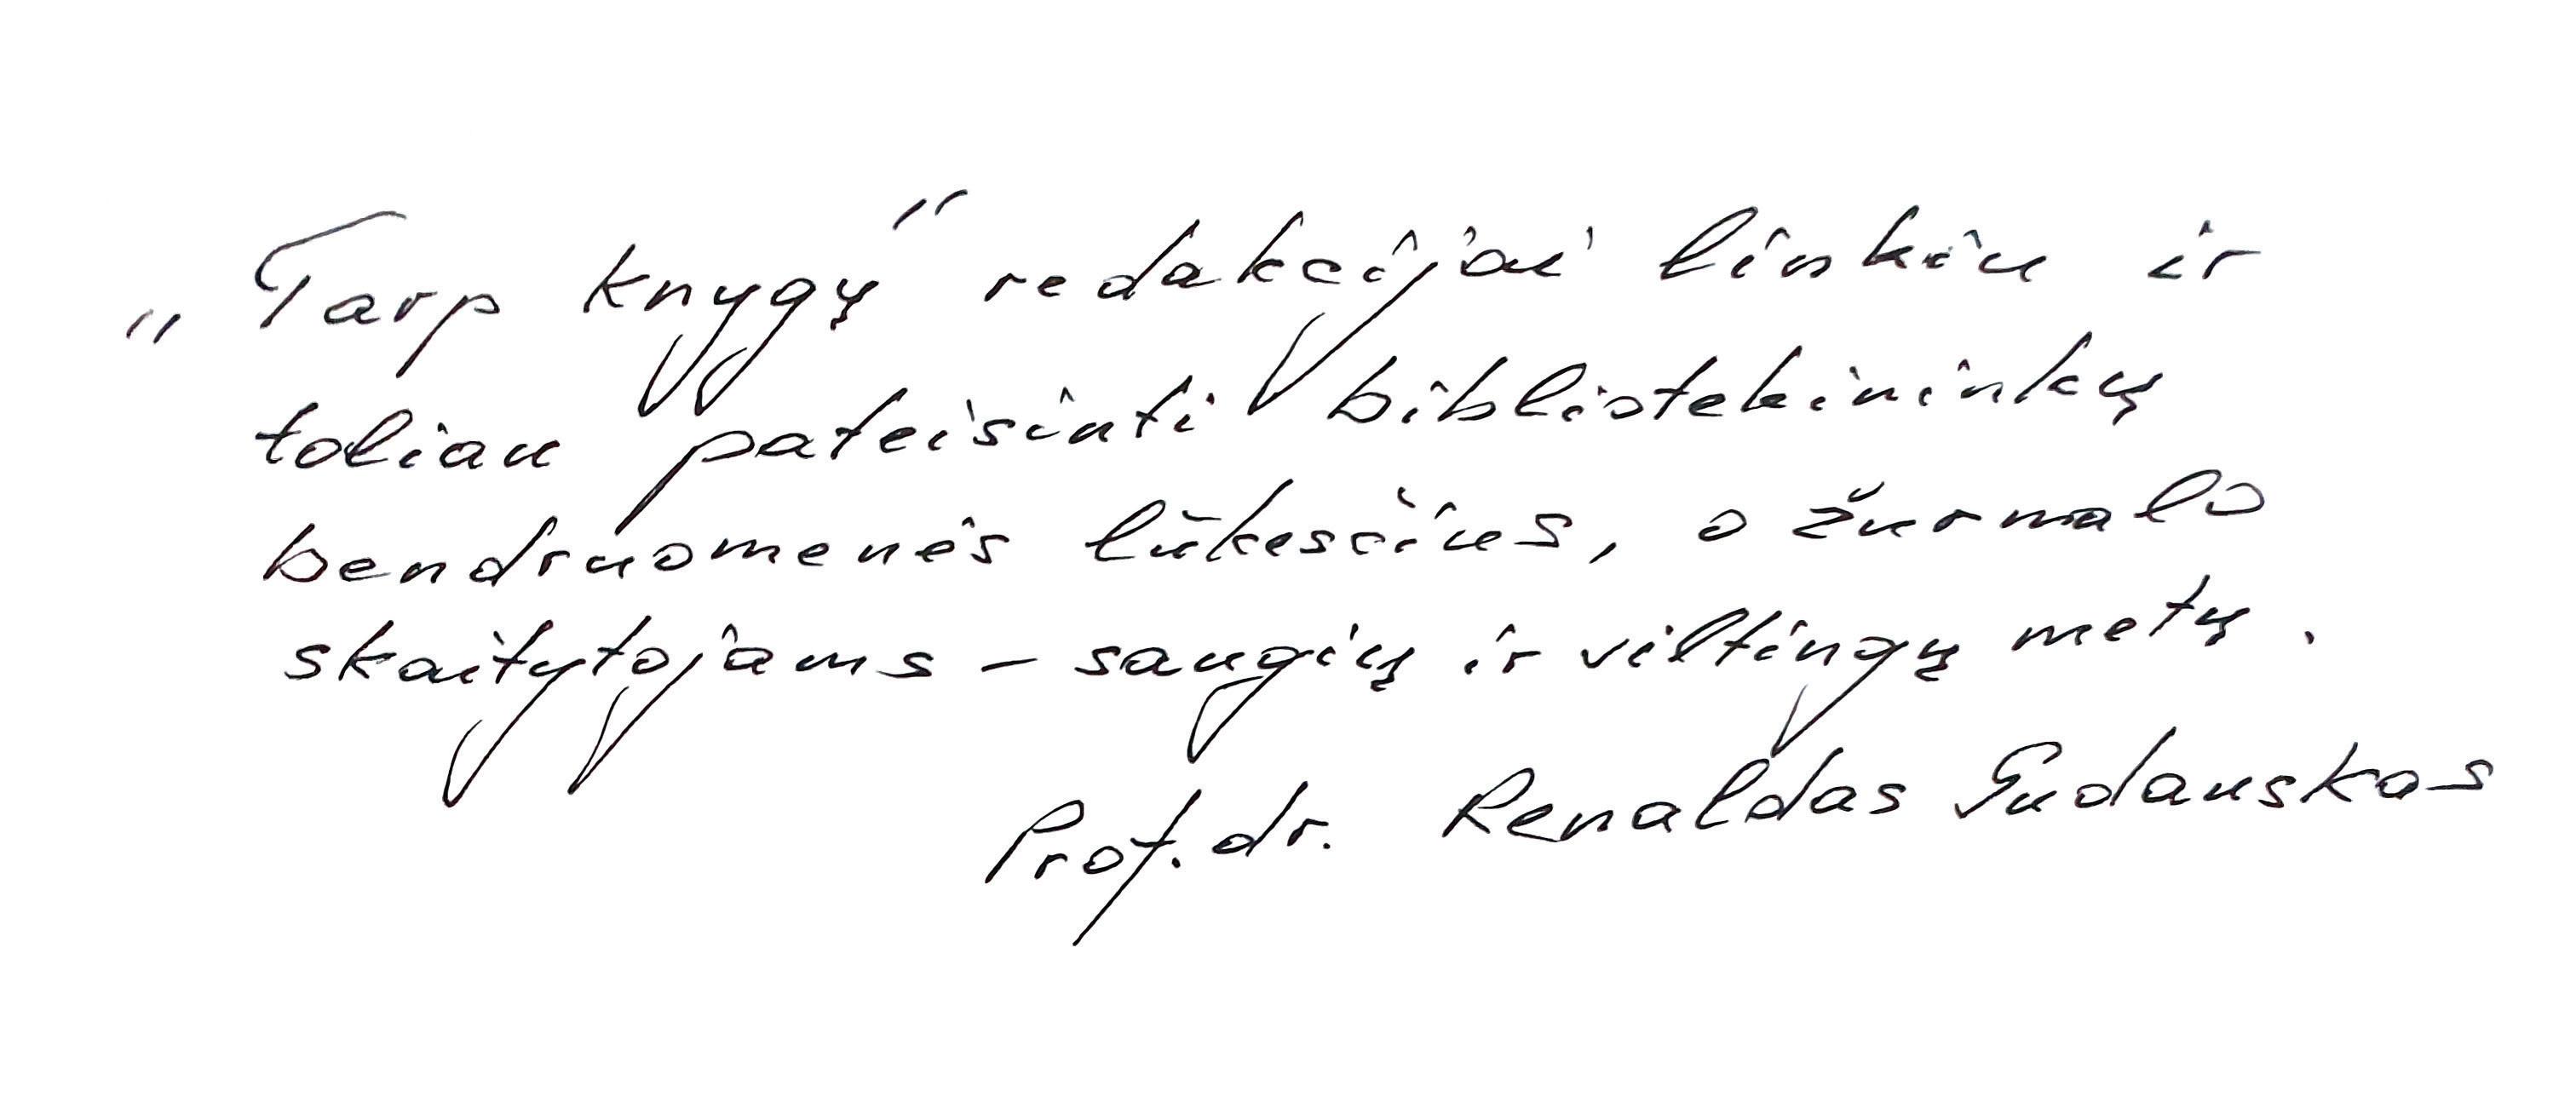 „Tarp knygų“ redakcijai linkiu ir
toliau pateisinti bibliotekininkų
bendruomenės lūkesčius, o žurnalo
skaitytojams – saugių ir viltingų metų.
Prof. dr. Renaldas Gudauskas